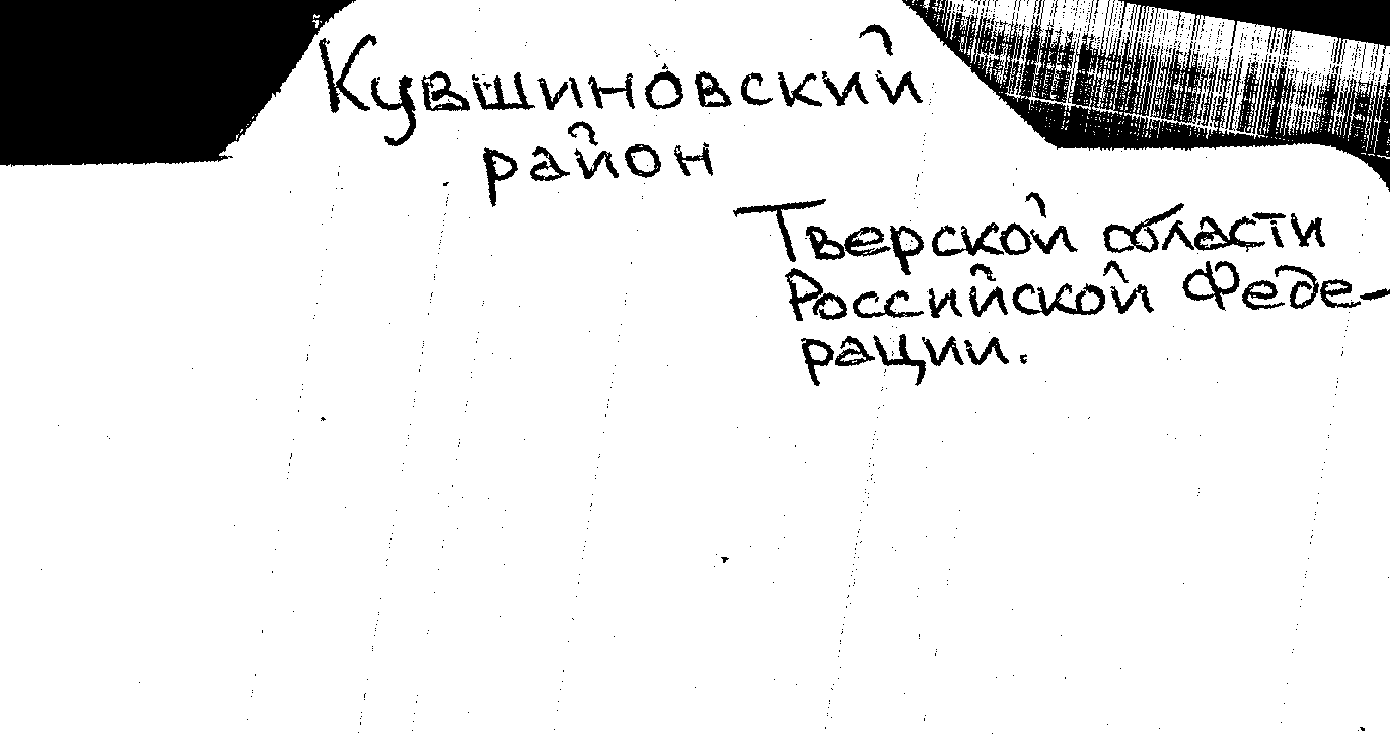 Кувшиновский
район
Тверской области
Российской Феде-
рации.